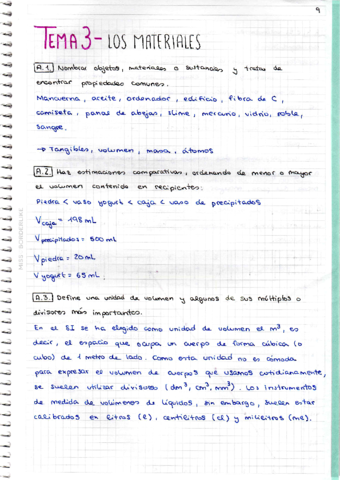 9
TEMA 3 - LOS MATERIALES
A.1. Nombrar objetos, materiales o sustancias y tratar de
encontrar propiedades comunes.
Mancuerna, aceite, ordenador, edificio, fibra de C,
camiseta, panal de abejas, slime, mercurio, vidrio, roble,
sangre.
→ Tangibles, volumen, masa, átomos
A.2. Haz estimaciones comparativas, ordenando de menor a mayor
el volumen contenido en recipientes:
Piedra < vaso yogurt < caja < vaso de precipitados
Vcaja = 198 mL
Vprecipitados = 500 mL
Vpiedra = 20 mL
Vyogurt = 65 mL
A.3. Define una unidad de volumen y algunos de sus múltiplos o
divisores más importantes.
En el SI se ha elegido como unidad de volumen el m³, es
decir, el espacio que ocupa un cuerpo de forma cúbica (o
cubo) de 1 metro de lado. Como esta unidad no es cómoda
para expresar el volumen de cuerpos que usamos cotidianamente,
se suelen utilizar divisores (dm³, cm³, mm³). Los instrumentos
de medida de volúmenes de líquidos, sin embargo, suelen estar
calibrados en litros (l), centilitros (cl) y mililitros (ml).